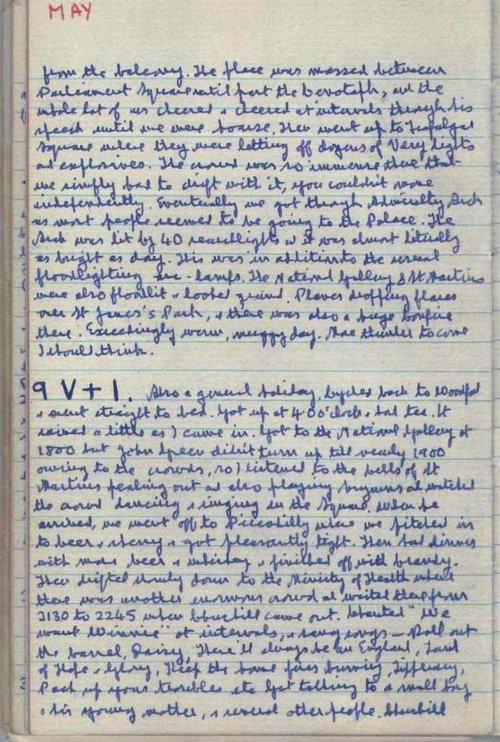 MAY
from the balcony. The place was massed between
Parliament Square until past the Cenotaph, and the
whole lot of us cheered & cheered at intervals through his
speech until we were hoarse. Then went up to Trafalgar
Square where they were letting off dozens of Very lights
and explosives. The crowd was so immense there that
we simply had to drift with it, you couldn't move
independently. Eventually we got through Admiralty Arch
as most people seemed to be going to the Palace. The
Arch was lit by 40 searchlights & it was almost literally
as bright as day. This was in addition to the normal
floodlighting arc-lamps. The National Gallery & St Martins
were also floodlit & looked grand. Planes dropping flares
over St James's Park, & there was also a huge bonfire
there. Exceedingly warm, muggy day. More thunder to come
I should think.
9 V+1. Also a general holiday. Cycled back to Woodford
& went straight to bed. Got up at 4 o'clock & had tea. It
rained a little as I came in. Got to the National Gallery at
1800 but John Speer didn't turn up till nearly 1900
owing to the crowds, so I listened to the bells of St
Martins pealing out and also playing hymns and watched
the crowd dancing & singing in the Square. When he
arrived, we went off to Piccadilly where we pitched in
to beer & sherry & got pleasantly tight. Then had dinner
with more beer & whiskey & finished off with brandy.
Then drifted down to the Ministry of Health where
there was another enormous crowd and waited there from
2130 to 2245 when Churchill came out. Shouted "We
want Winnie" at intervals, & sang songs - Roll out
the barrel, Daisy, There'll always be an England, Land
of Hope & Glory, Keep the home fires burning, Tipperary,
Pack up your troubles etc. Got talking to a small boy
& his young mother, & several other people. Churchill